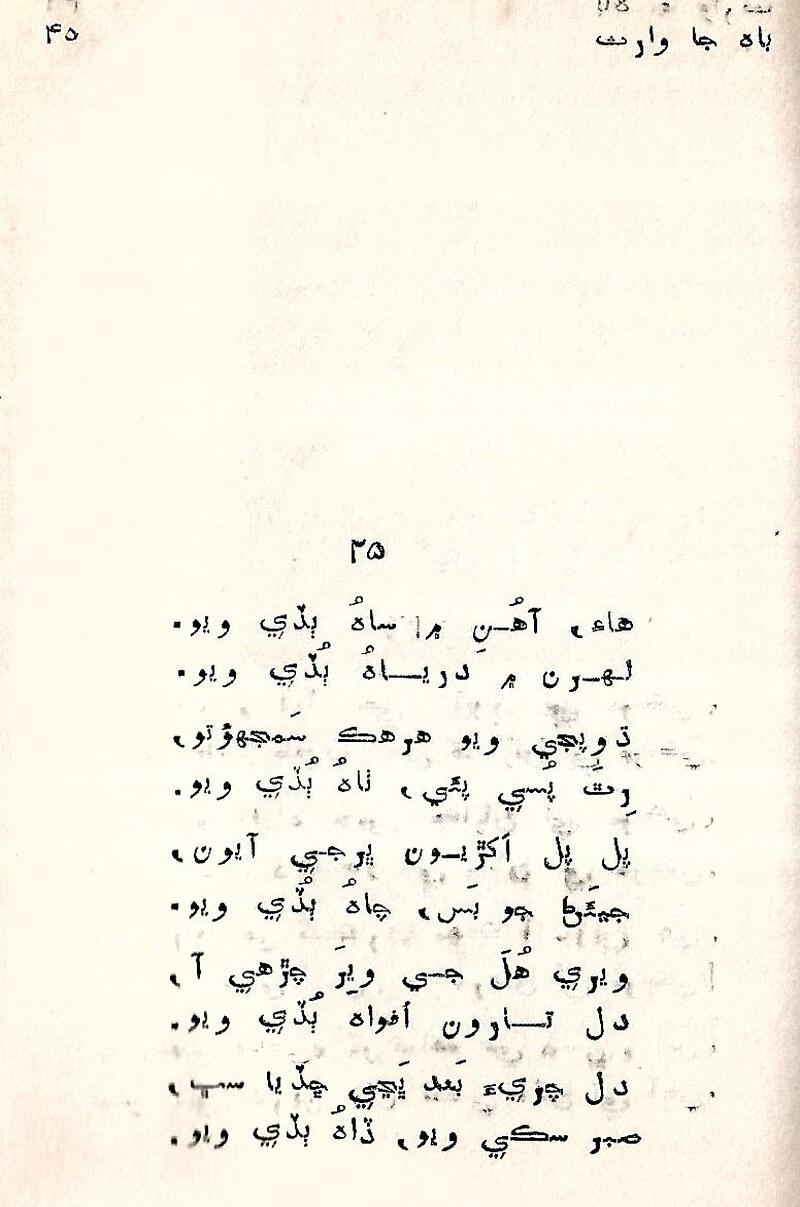 باھ جا وارث
۴۵
۳۵
هاءِ، آهُنِ ۾ ساھُ ٻڏي ويو.
لهرن ۾ درياھُ ٻُڏي ويو.
ڌويجي ويو هرهڪ سَمجهوُتو،
رِتَ پُسي پئي، ٺاھُ ٻُڏي ويو.
پل پل اکڙيون ڀرجي آيون،
جيئَڻ جو بَس، چاھُ ٻُڏي ويو.
ويري هُلَ جي ويرَ چڙهي آ،
دل تارون اُفواھ ٻُڏي ويو.
دل چريءَ بَعد ڀَڃي ڇڏيا سڀ،
صبر سڪي ويو، ڏاھُ ٻڏي ويو.